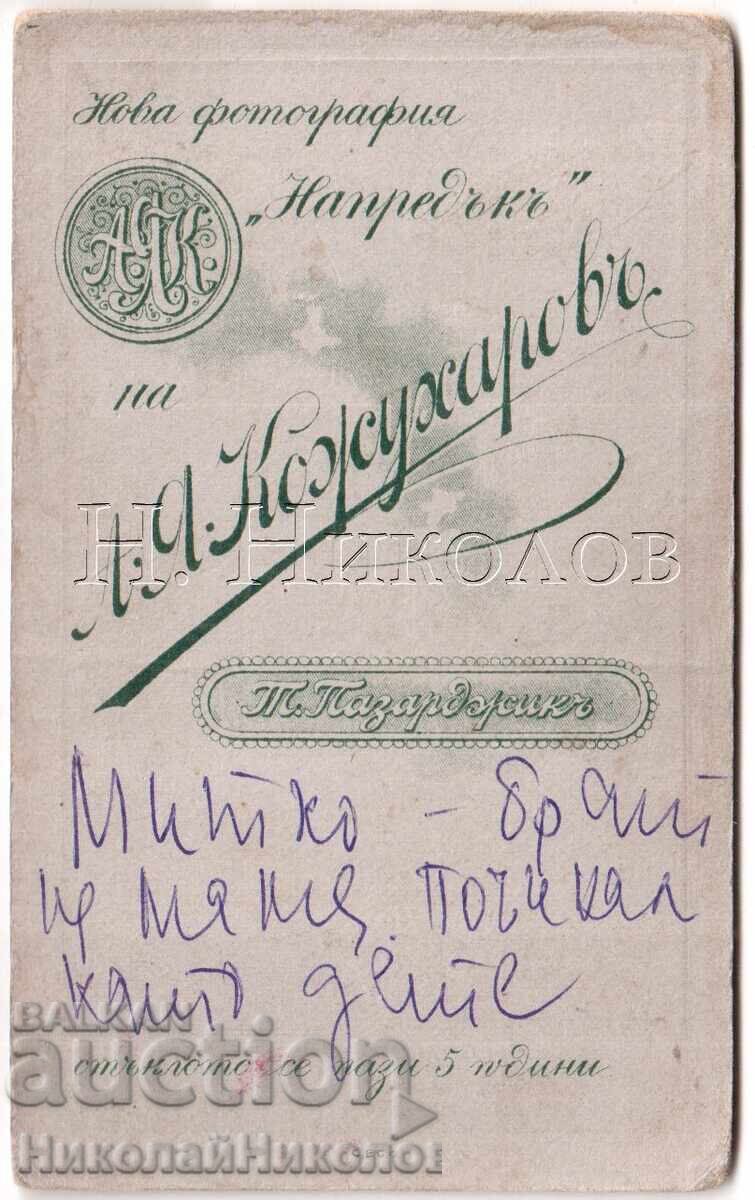 Нова фотография
АЯК
„Напредъкъ"
на
А. Я. Кожухаровъ
Н. Николов
Т. Пазарджикъ
Митко – брат
на мама. починал
като дете
BALKAN
auction
стъклото се пази 5 години
НиколайНиколов